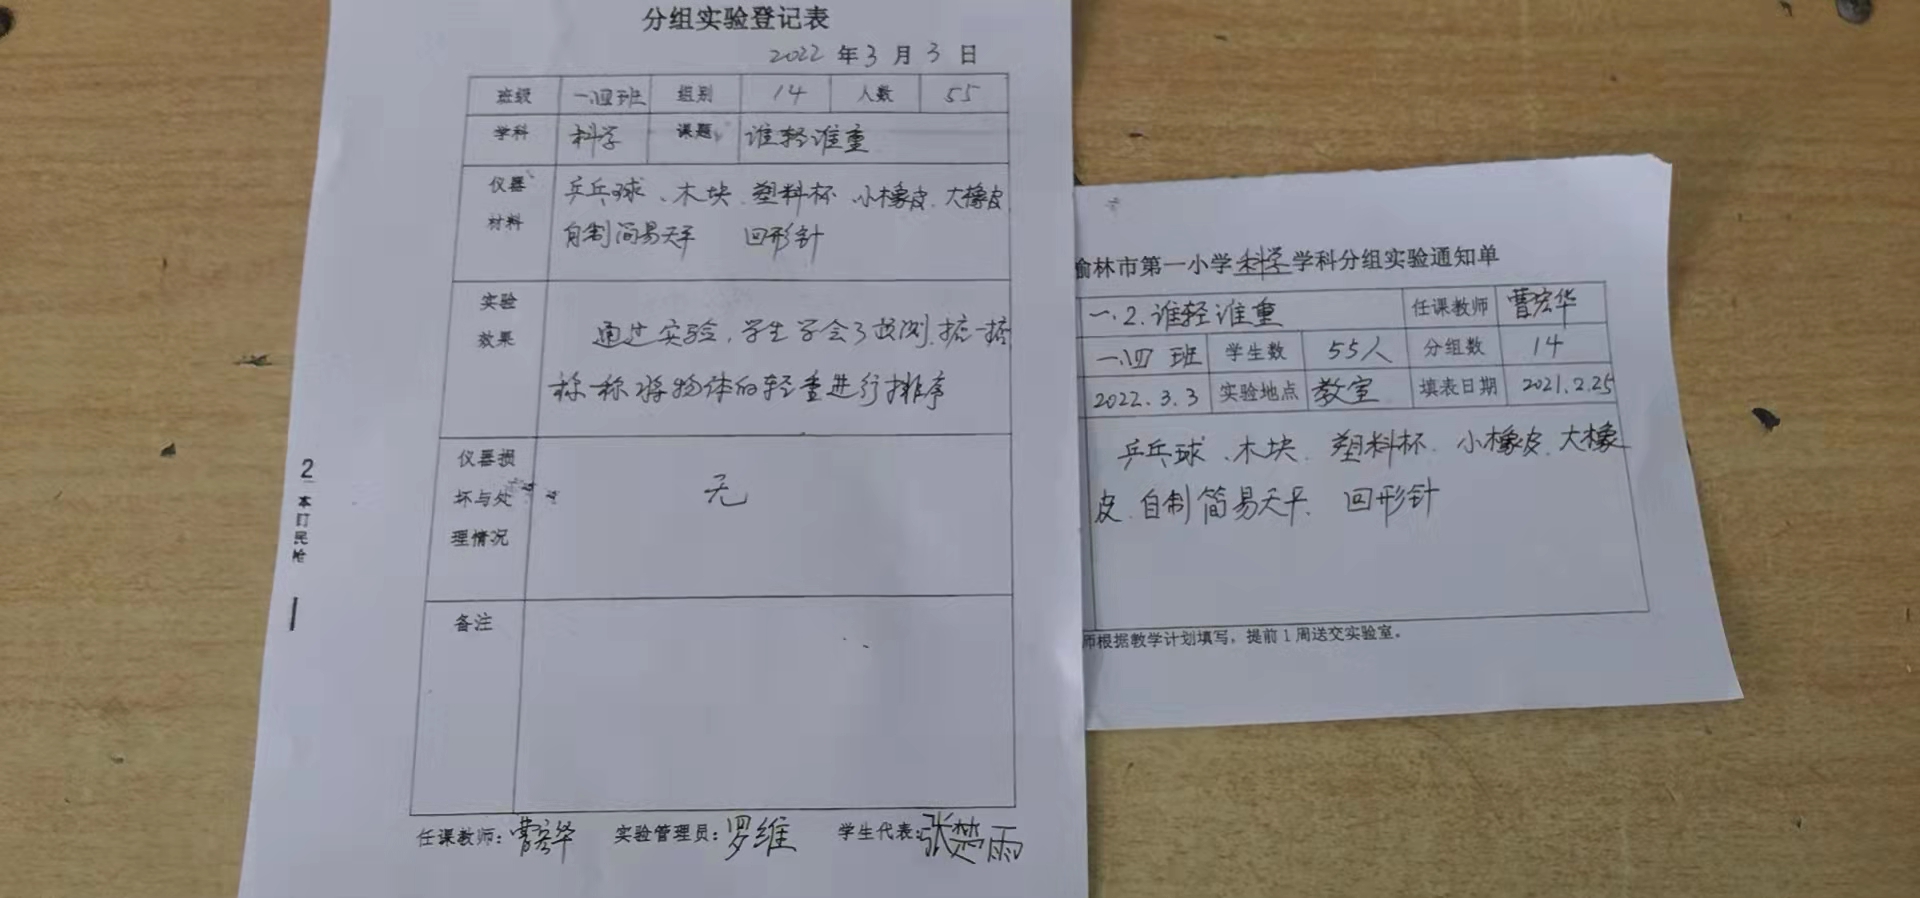 分组实验登记表
2022 年 3 月 3 日
班级 一.四班 组别 14 人数 55
学科 科学 课题 谁轻谁重
仪器材料 乒乓球、木块、塑料杯、小橡皮、大橡皮
自制简易天平 回形针
实验效果 通过实验,学生学会了预测、掂一掂
称一称将物体的轻重进行排序
仪器损坏与处理情况 无
备注
任课教师:曹宏华 实验管理员:罗维 学生代表:张楚雨
2
榆林市第一小学科学学科分组实验通知单
一.2.谁轻谁重 任课教师 曹宏华
一.四 班 学生数 55人 分组数 14
2022.3.3 实验地点 教室 填表日期 2021.2.25
乒乓球、木块、塑料杯、小橡皮、大橡
皮、自制简易天平、回形针
师根据教学计划填写,提前1周送交实验室。